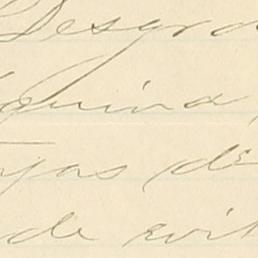 Desgra
quina,
yas de
de evit